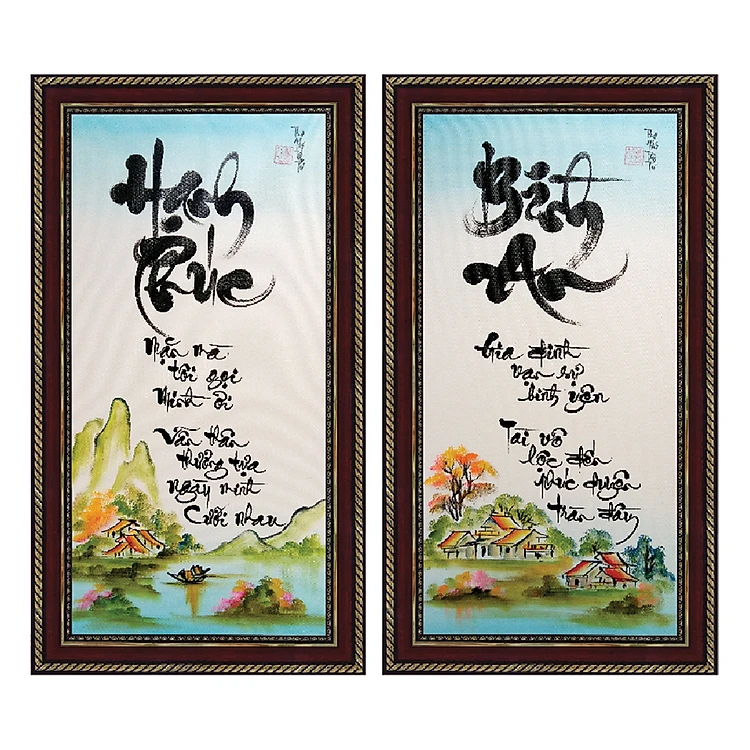 Hạnh
Phúc
Nặn mà
tôi gọi
Mình ơi
Vẫn thân
thương tựa
ngày mình
Cưới nhau
Bình
An
Gia đình
vạn sự
bình yên
Tài vô
lộc đến
phúc duyên
tràn đầy